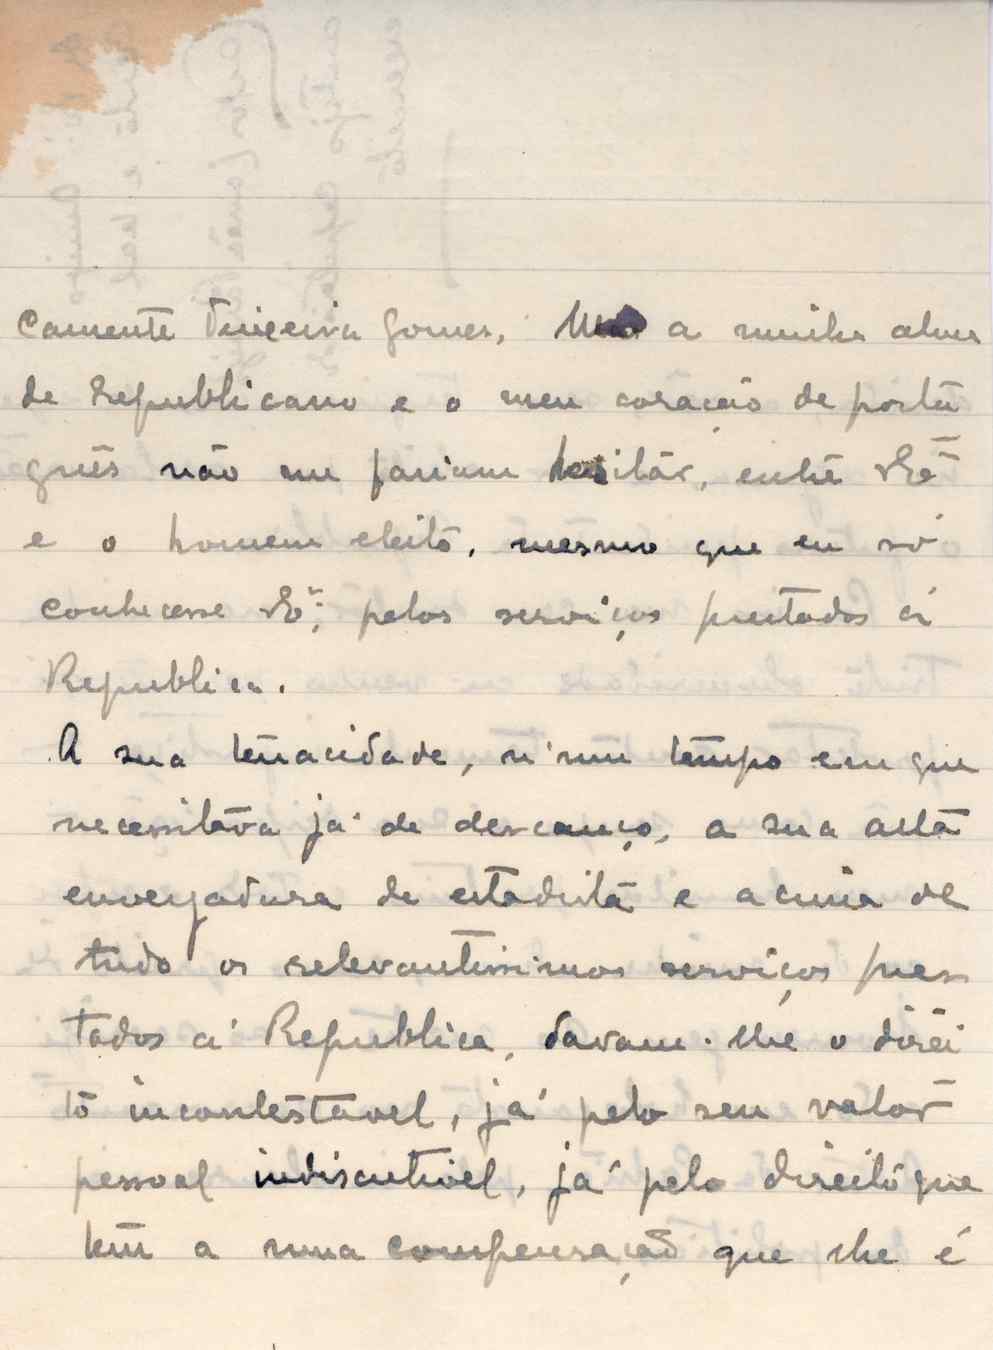 camente Teixeira Gomes. Mas a minha alma
de republicano e o meu coração de portu
guês não me fariam hesitár, entre VExª
e o homem eleito, mesmo que eu só
conhecesse VExª, pelos serviços prestados á
Republica.
A sua tenacidade, n'um tempo em que
necessitava já de descanço, a sua alta
envergadura de estadista e acima de
tudo os relevantissimos serviços pres
tados á Republica, davam-lhe o direi
to incontestavel, já pelo seu valor
pessoal indiscutivel, já pelo direito que
tem a uma compensação que lhe é